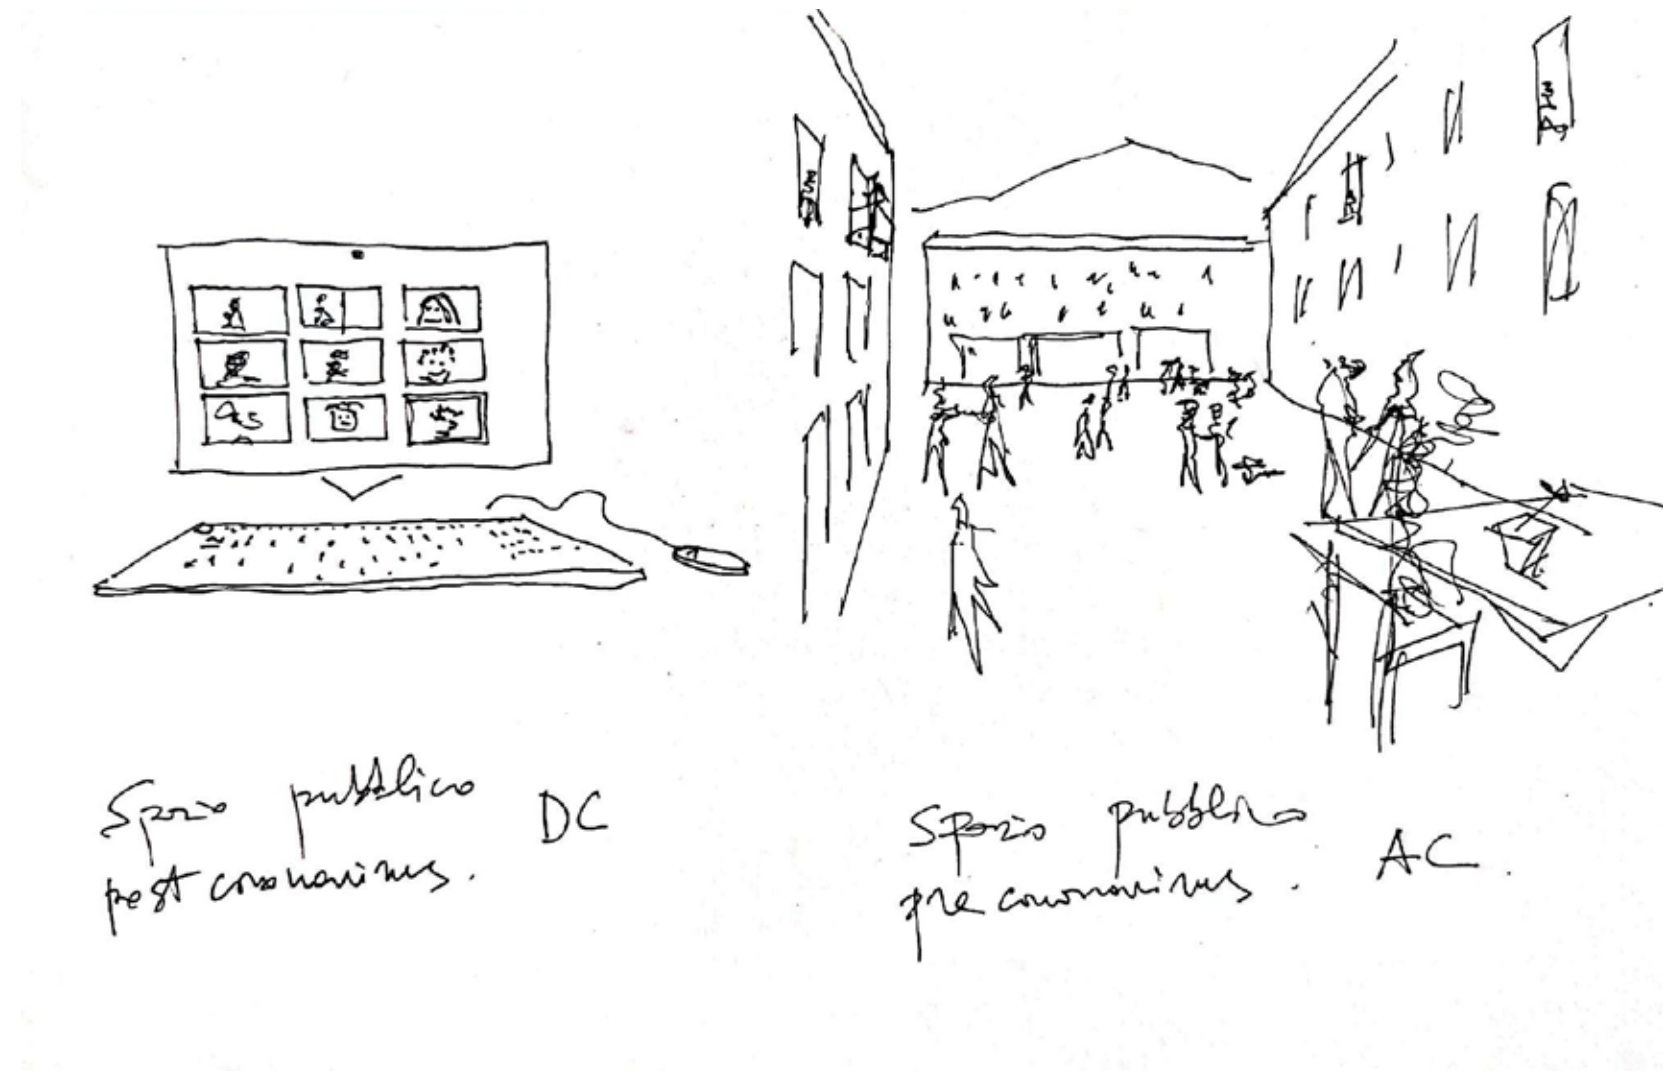 Spazio pubblico DC
post coronavirus.
Spazio pubblico AC
pre coronavirus.